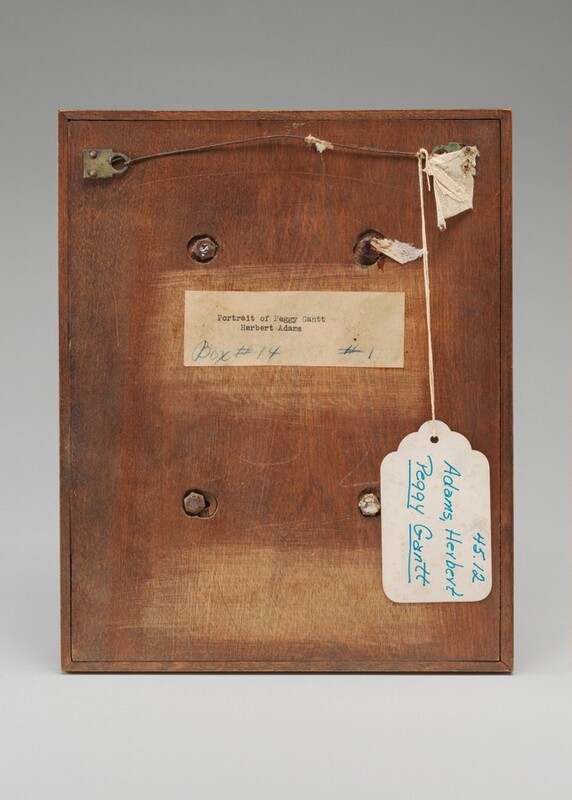 Portrait of Peggy Gantt
Herbert Adams
Box #14 #1
45.12
Adams, Herbert
Peggy Gantt